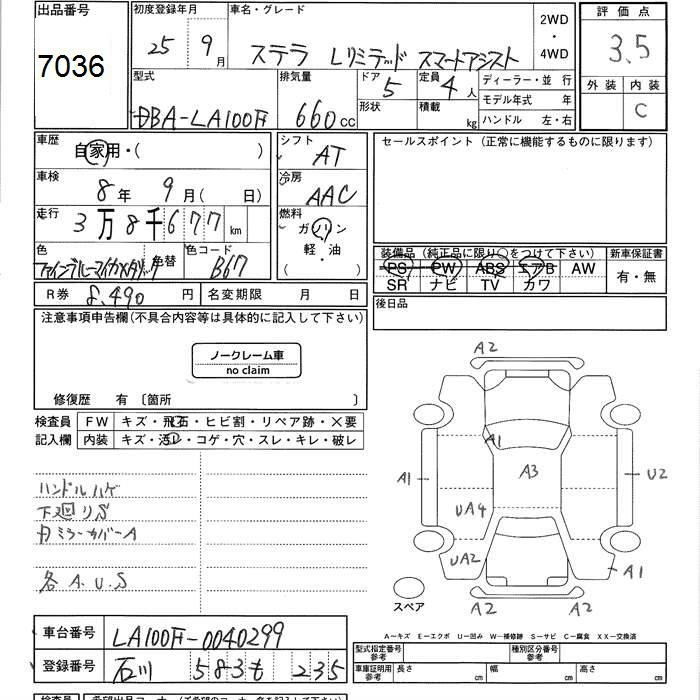 出品番号
7036
初度登録年月
25 9月
車名・グレード
ステラ Lリミテッド スマートアシスト
2WD
・
4WD
評価点
3.5
外装 内装
C
型式
DBA-LA100F
排気量
660cc
ドア 5
形状
定員 4人
積載 kg
ディーラー・並行
モデル年式 年
ハンドル 左・右
車歴
自家用・( )
シフト
AT
セールスポイント (正常に機能するものに限ります)
車検
8年 9月( 日)
冷房
AAC
走行
3万8千677km
燃料
ガソリン
・
軽・油
( )
色
ファインブルーマイカメタリック
色替
色コード
B67
装備品 (純正品に限り○をつけて下さい)
PS PW ABS エアB AW
SR ナビ TV カワ
新車保証書
有・無
R券 8,490円
名変期限 月 日
後日品
注意事項申告欄(不具合内容等は具体的に記入して下さい)
ノークレーム車
no claim
修復歴 有〔箇所 〕
検査員
記入欄
FW キズ・飛石・ヒビ割・リペア跡・×要
内装 キズ・汚レ・コゲ・穴・スレ・キレ・破レ
ハンドルハゲ
下廻りS
ミラーカバーA
各A.U.S
A2
A1
A1
A3
U2
UA4
UA2
A1
A2
A2
スペア
A〜キズ E−エクボ U−凹み W−補修跡 S−サビ C−腐食 XX−交換済
車台番号 LA100F-0040299
登録番号 石川 583 も 235
型式指定番号
参考
種別区分番号
参考
車庫証明用
参考
長さ cm
幅 cm
高さ cm